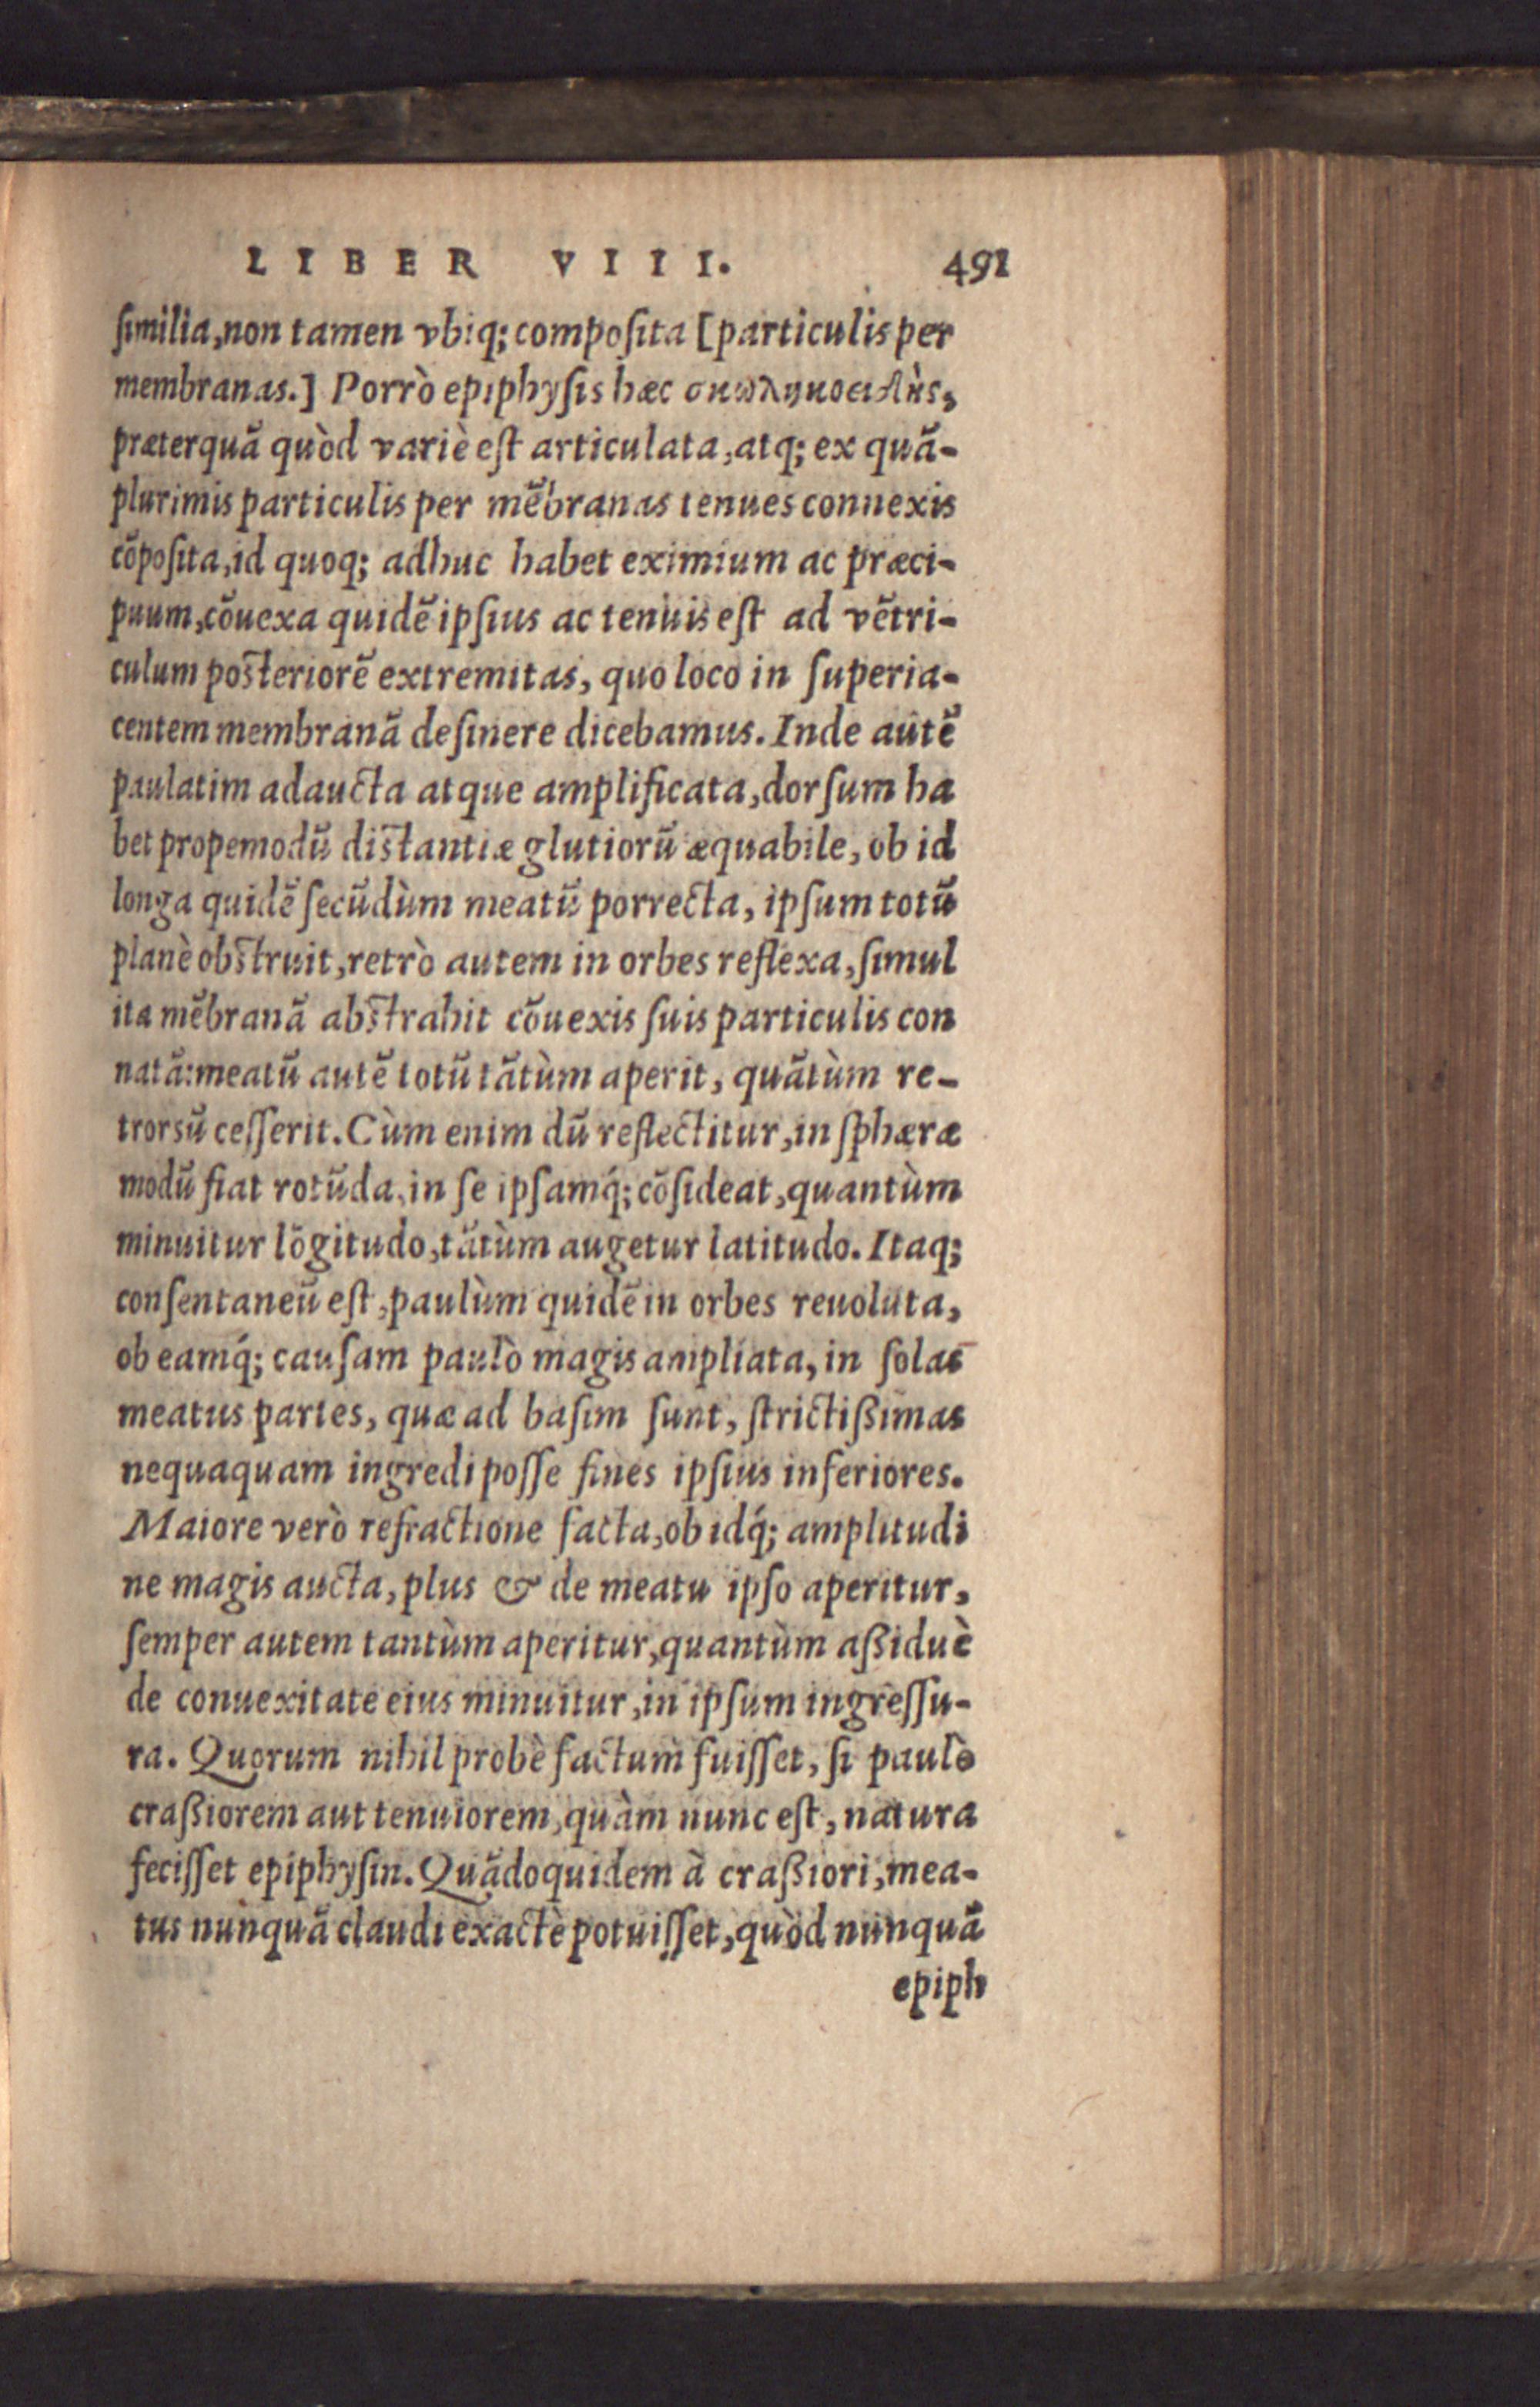 LIBER VIII. 491
similia, non tamen vbiq; composita [particulis per
membranas.] Porrò epiphysis hæc σκωληκοειδὴς,
præterquā quòd variè est articulata, atq; ex quā-
plurimis particulis per mēbranas tenues connexis
cōposita, id quoq; adhuc habet eximium ac præci-
puum, cōuexa quidē ipsius ac tenuis est ad vētri-
culum posteriorē extremitas, quo loco in superia-
centem membranā desinere dicebamus. Inde autē
paulatim adaucta atque amplificata, dorsum ha
bet propemodū distantiæ glutiorū æquabile, ob id
longa quidē secūdùm meatū porrecta, ipsum totū
planè obstruit, retrò autem in orbes reflexa, simul
ita mēbranā abstrahit cōuexis suis particulis con
natā: meatū autē totū tātùm aperit, quātùm re-
trorsū cesserit. Cùm enim dū reflectitur, in sphæræ
modū fiat rotūda, in se ipsamq́; cōsideat, quantùm
minuitur lōgitudo, tātùm augetur latitudo. Itaq;
consentaneū est, paulùm quidē in orbes reuoluta,
ob eamq́; causam paulò magis ampliata, in solas
meatus partes, quæ ad basim sunt, strictißimas
nequaquam ingredi posse fines ipsius inferiores.
Maiore verò refractione facta, ob idq́; amplitudi
ne magis aucta, plus & de meatu ipso aperitur,
semper autem tantùm aperitur, quantùm aßiduè
de conuexitate eius minuitur, in ipsum ingressu-
ra. Quorum nihil probè factum fuisset, si paulò
craßiorem aut tenuiorem, quàm nunc est, natura
fecisset epiphysin. Quādoquidem à craßiori, mea-
tus nunquā claudi exactè potuisset, quòd nunquā
epiph